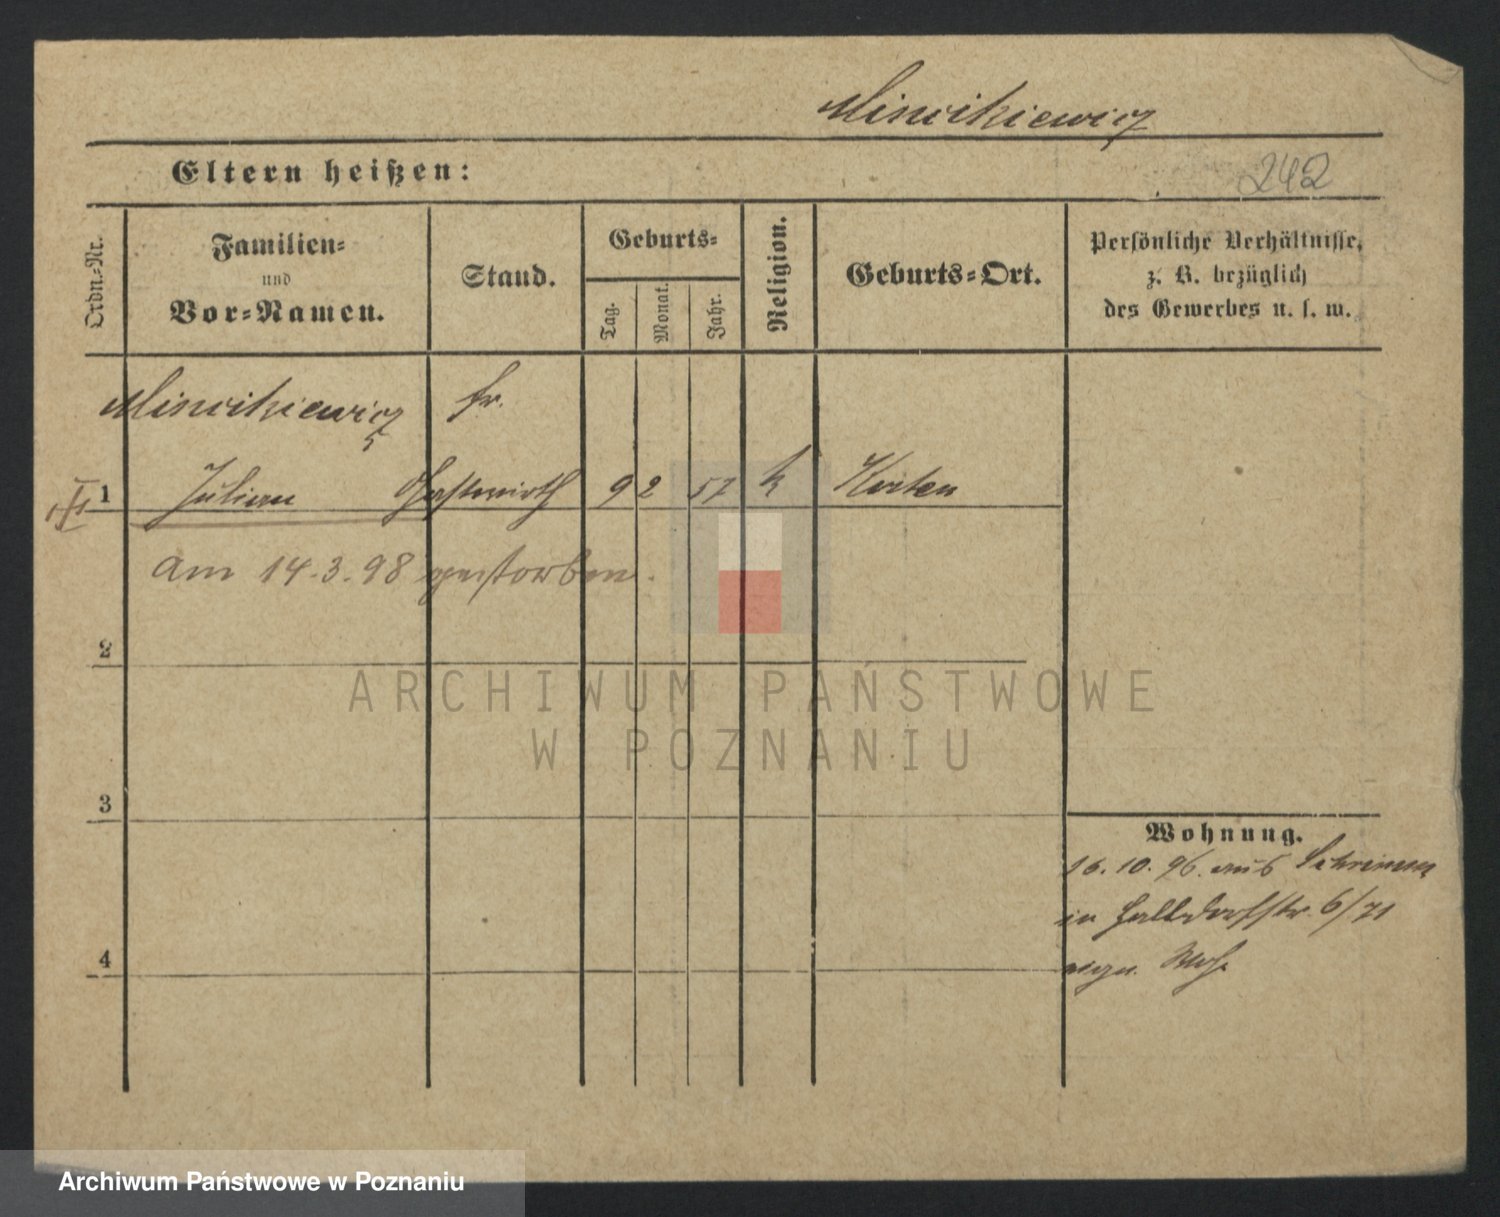 Minikiewicz
Eltern heißen:
242
Ordn.-Nr.
Familien-
und
Vor-Namen.
Stand.
Geburts-
Tag.
Monat.
Jahr.
Religion.
Geburts-Ort.
Persönliche Verhältnisse,
z. B. bezüglich
des Gewerbes u. s. w.
fr.
1 Julian Gastwirth 9 2 57 k
am 14.3.98 gestorben.
2
ARCHIWUM PAŃSTWOWE
W POZNANIU
3
Wohnung.
16. 10. 96. aus Schrimm
in 6/71
4
Archiwum Państwowe w Poznaniu